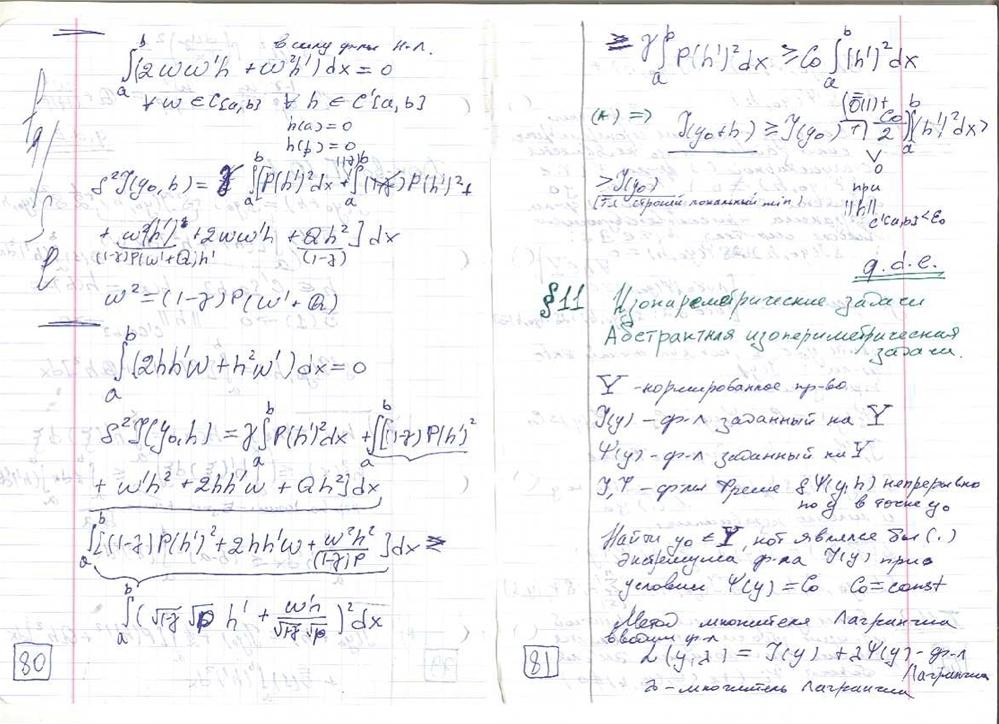 в силу ф-лы Н-Л.
∫_a^b (2ww'h + w²h')dx = 0
∀ w ∈ C[a,b] ∀ h ∈ C'[a,b]
h(a)=0
h(b)=0
δ²J(y₀,h) = ∫_a^b [P(h')²dx + ∫_a^b (1-γ)P(h')² +
+ w²(h')² + 2ww'h + Qh²]dx
(1-γ)P(w'+Q)h' (1-γ)
w² = (1-γ)P(w'+Q)
∫_a^b (2hh'w + h²w')dx = 0
δ²J(y₀,h) = γ∫_a^b P(h')²dx + ∫_a^b [(1-γ)P(h')²
+ w'h² + 2hh'w + Qh²]dx
∫_a^b [(1-γ)P(h')² + 2hh'w + w²h²/(1-γ)P]dx ≥
∫_a^b (√1-γ √P h' + wh/√1-γ √P)²dx
80
≥ γ∫_a^b P(h')²dx ≥ C₀∫_a^b (h')²dx
(*) => J(y₀+h) ≥ J(y₀) + (ō(1) + C₀/2)∫_a^b (h')²dx >
> J(y₀)
[т.е. строгий локальный min]
∨
0
при
||h||C'[a,b] < ε₀
q.d.e.
§11 Изопараметрические задачи
Абстрактная изопериметрическая
задача.
Y - нормированное пр-во
J(y) - ф-л заданный на Y
Ψ(y) - ф-л заданный на Y
J,Ψ - ф-лы Фреше δΨ(y,h) непрерывно
по y в точке y₀
Найти y₀ ∈ Y, кот являлся бы (.)
экстремума ф-ла J(y) при
условии Ψ(y) = C₀ C₀=const
Метод множителя Лагранжа
вводим ф-л
L(y,λ) = J(y) + λΨ(y) - ф-л
Лагранжа
λ - множитель Лагранжа
81